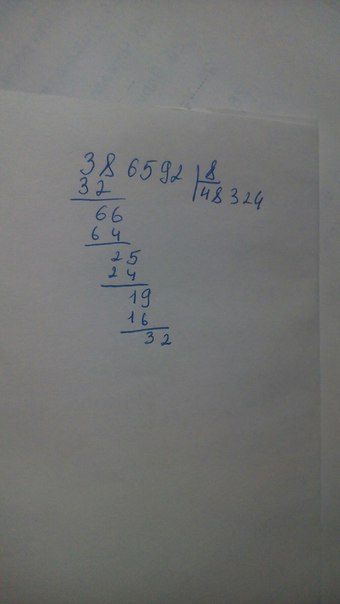 386592 8
32 48324
66
64
25
24
19
16
32